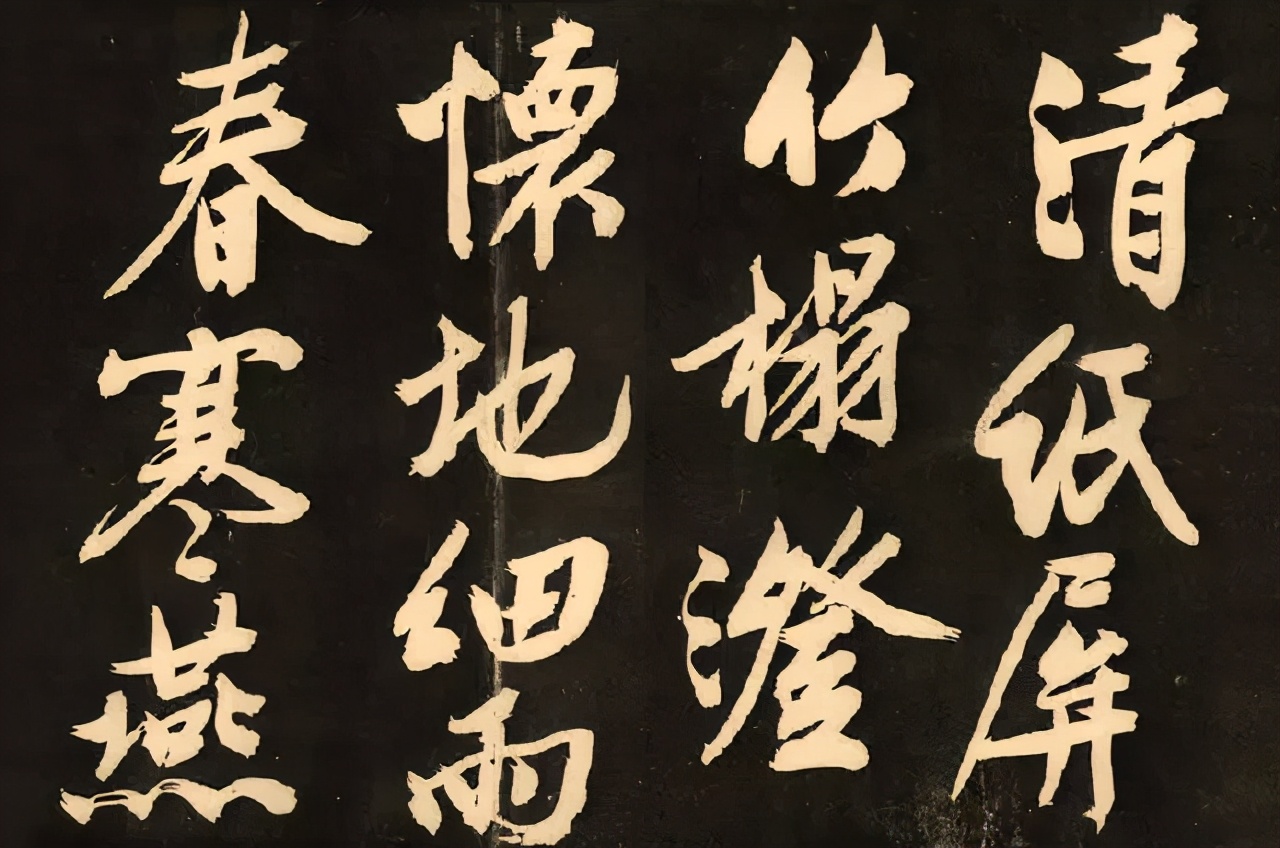 清纸屏
竹榻澄
懷地细雨
春寒燕